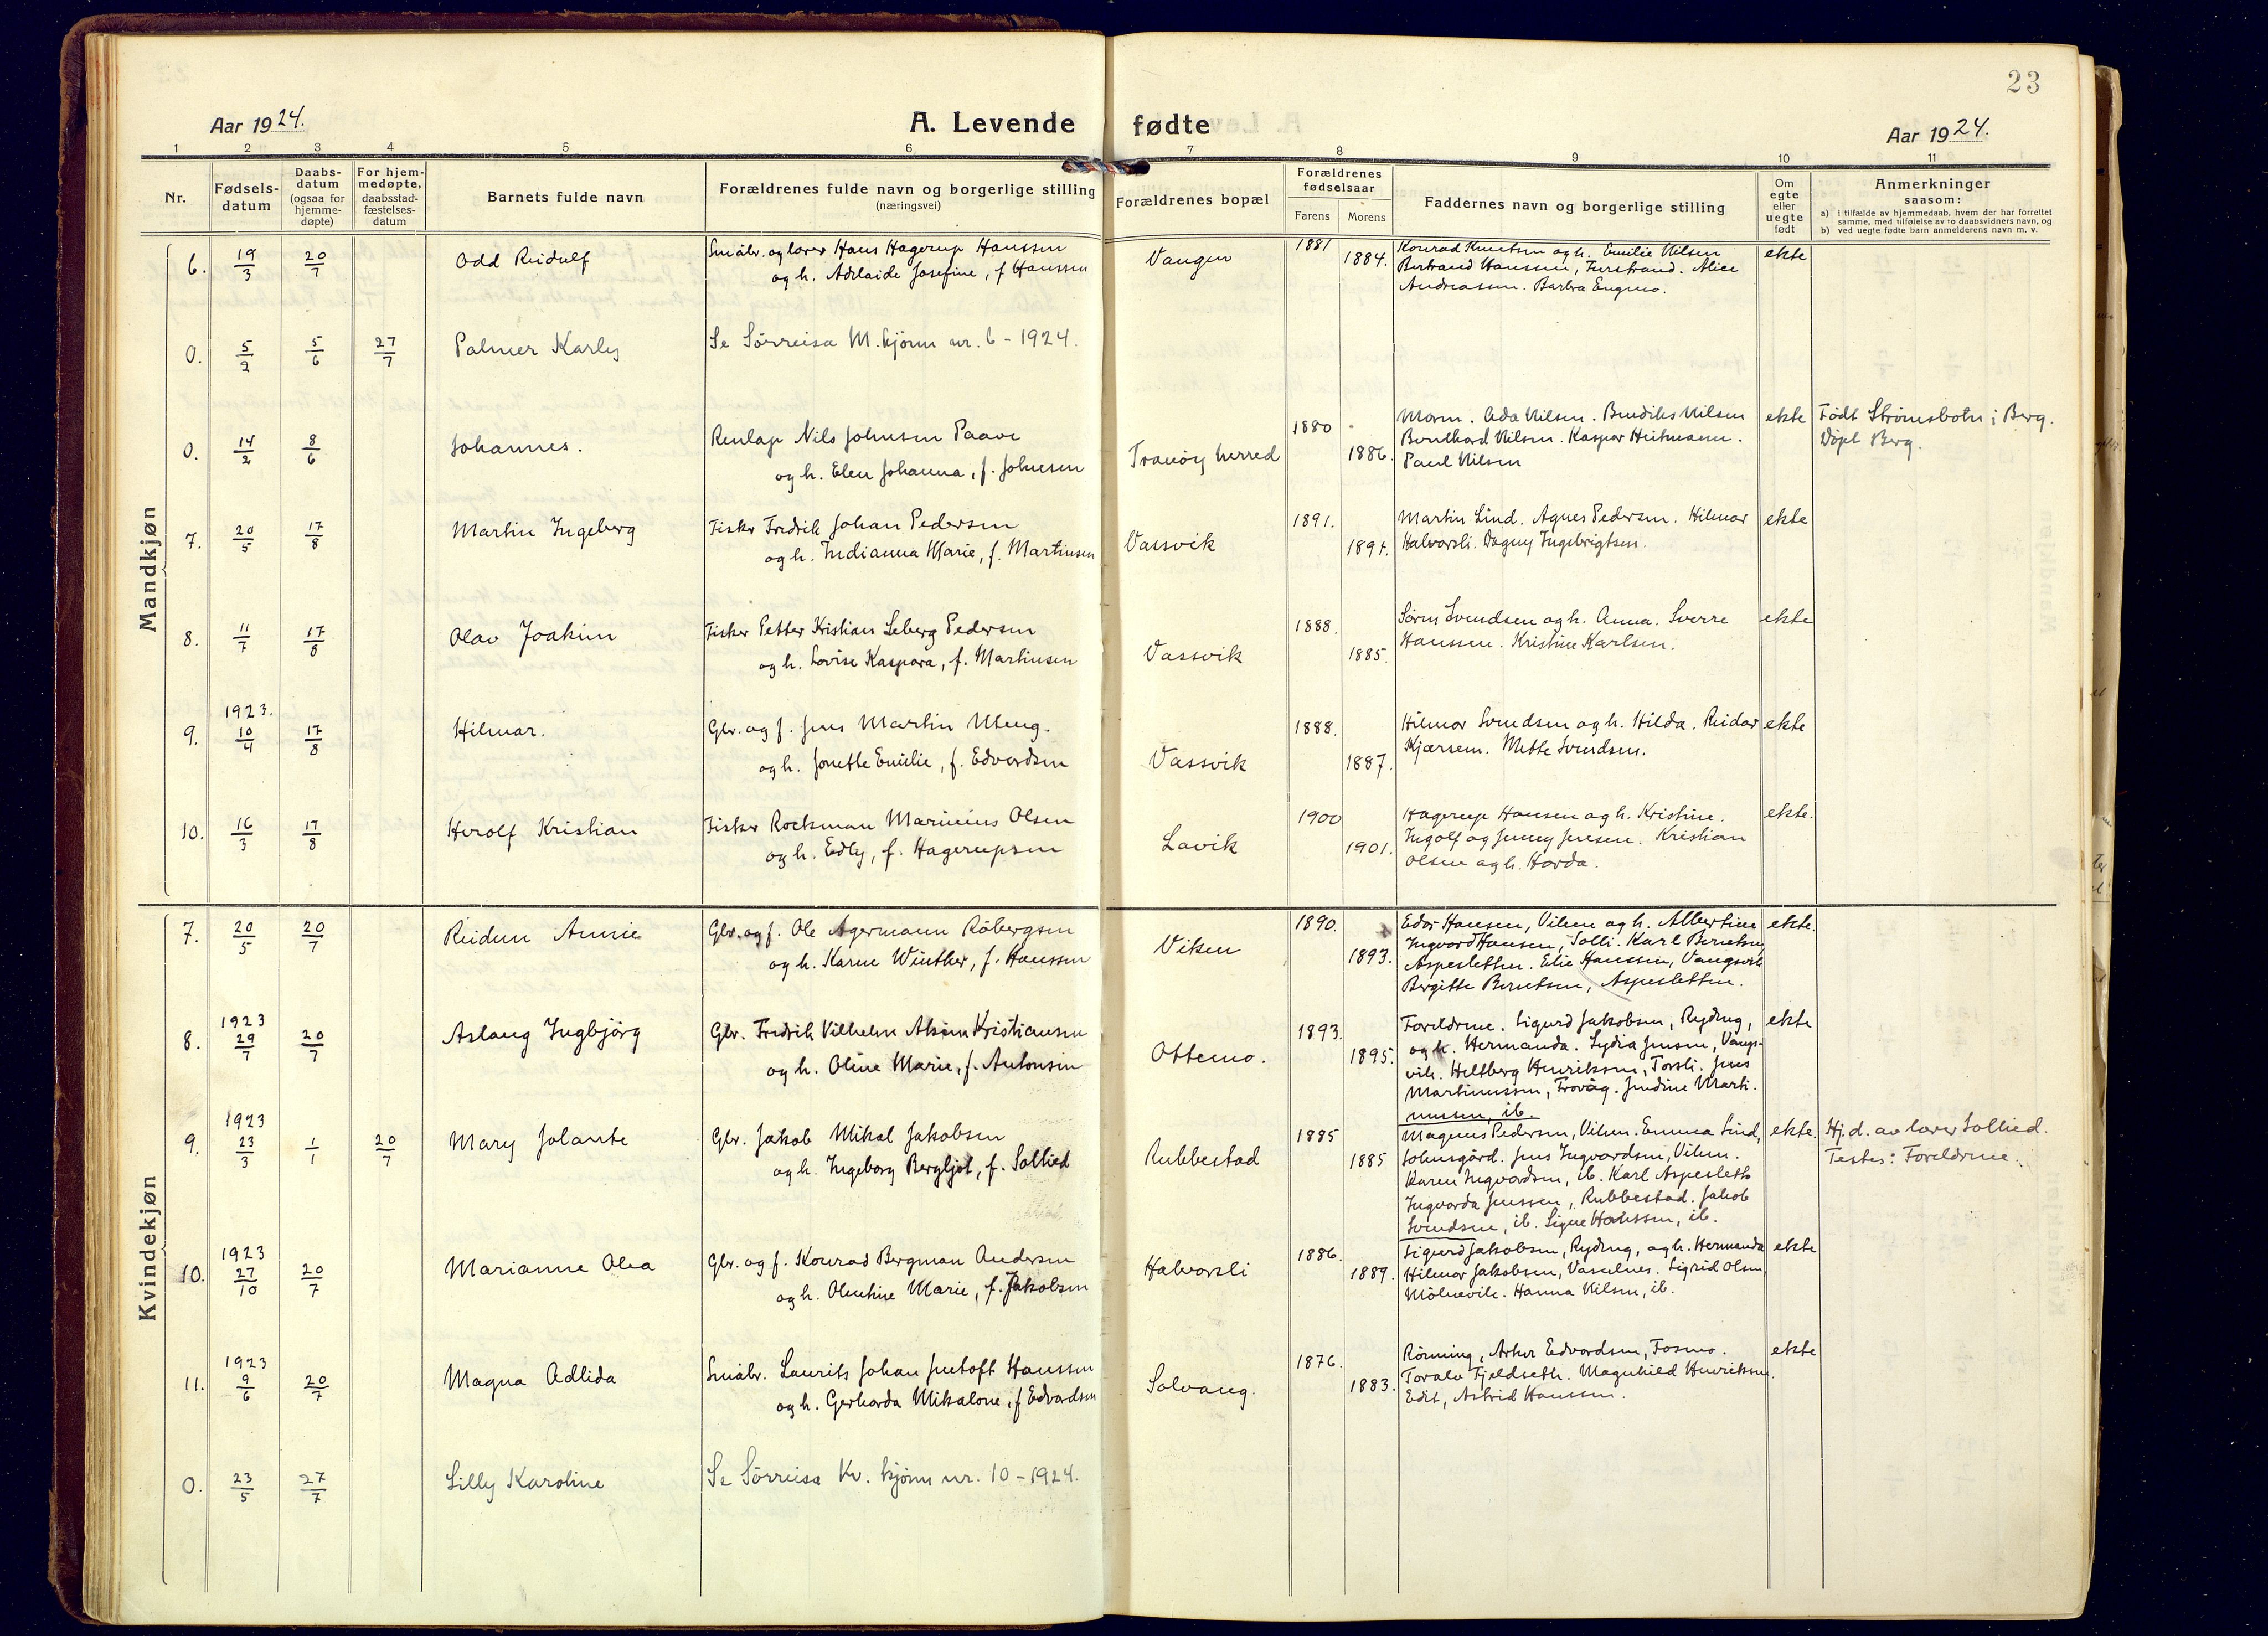 23
Aar 1924.
A. Levende fødte
Aar 1924.
1 2 3 4 5 6 7 8 9 10 11
Nr.
Fødsels-
datum
Daabs-
datum
(ogsaa for
hjemme-
døpte)
For hjem-
medøpte,
daabsstad-
fæstelses-
datum
Barnets fulde navn
Forældrenes fulde navn og borgerlige stilling
(næringsvei)
Forældrenes bopæl
Forældrenes
fødselsaar
Farens Morens
Faddernes navn og borgerlige stilling
Om
egte
eller
uegte
født
Anmerkninger
saasom:
a) i tilfælde av hjemmedaab, hvem der har forrettet
samme, med tilføielse av to daabsvidners navn, og
b) ved uegte fødte barn anmelderens navn m. v.
Mandkjøn
6. 19/3 20/7 Odd Reidulf
Småbr. og lærer Hans Hagerup Hanssen
og h. Adelaide Josefine, f Hanssen
Vangen 1881 1884.
Konrad Knutsen og h. Emilie Nilsen
Bertrand Hanssen, Furstrand. Alice
Andreassen. Barbra Engmo.
ekte
0. 5/2 5/6 27/7 Palmer Karly
Se Sørreisa M. kjønn nr. 6 - 1924.
0. 14/2 8/6 Johannes.
Renlap Nils Johnsen Paave
og h. Elen Johanna, f. Johnsen
Tranøy herred 1880 1886.
Moren. Ada Nilsen. Bendiks Nilsen
Bernthard Nilsen. Kaspar Heitmann.
Paul Nilsen
ekte
Født Strømsbotn i Berg.
Døpt Berg.
7. 20/5 17/8 Martin Ingeberg
Fisker Fredrik Johan Pedersen
og h. Indianna Marie, f. Martinsen
Vassvik 1891. 1891.
Martin Lind. Agnes Pedersen. Hilmar
Halvorsli. Dagny Ingebrigtsen.
ekte
8. 11/7 17/8 Olav Joakim
Fisker Petter Kristian Leberg Pedersen
og h. Lovise Kaspara, f. Martinsen
Vassvik 1888. 1885.
Søren Svendsen og h. Anna. Sverre
Hanssen. Kristine Karlsen.
ekte
1923.
9. 10/4 17/8 Hilmar.
Gbr. og f. Jens Martin Uteng.
og h. Jonette Emilie, f. Edvardsen
Vassvik 1888. 1887.
Hilmar Svendsen og h. Hilda. Reidar
Kjærsem. Mette Svendsen.
ekte
10. 16/3 17/8 Herolf Kristian
Fisker Rockman Marinius Olsen
og h. Edly, f. Hagerupsen
Lavik 1900 1901.
Hagerup Hansen og h. Kristine.
Ingolf og Jenny Jensen. Kristian
Olsen og h. Horda.
ekte.
Kvindekjøn
7. 20/5 20/7 Reidun Annie
Gbr. og f. Ole Agermann Røbergsen
og h. Karen Winther, f. Hanssen
Viken 1890. 1893.
Edor Hansen, Viken og h. Albertine
Ingvard Hansen, Solli. Karl Berntsen
Aspesletten. Elie Hanssen, Vangsvik
Bergitte Berntsen, Aspesletten.
ekte.
1923
8. 29/7 20/7 Aslaug Ingbjørg
Gbr. Fredrik Vilhelm Aksim Kristiansen
og h. Oline Marie, f. Antonsen
Ottemo. 1893. 1895.
Foreldrene. Sigurd Jakobsen, Rydning,
og h. Hermanda. Lydia Jensen, Vangs-
vik. Heltberg Henriksen, Torsli. Jens
Martinussen, Trovåg. Jendine Marti-
nussen, ib.
ekte
1923
9. 23/3 1/1 20/7 Mary Jolante
Gbr. Jakob Mikal Jakobsen
og h. Ingeborg Bergljot, f. Sollied
Rubbestad 1885 1885
Magnus Pedersen, Viken. Emma Lind,
Johnsgård. Jens Ingvardsen, Viken.
Karen Ingvardsen, ib. Karl Aspesletto
Ingvarda Jenssen, Rubbestad. Jakob
Svendsen, ib. Signe Hanssen, ib.
ekte.
Hj. d. av lærer Sollied.
Testes: Foreldrene.
1923
10. 27/10 20/7 Marianne Olea
Gbr. og f. Konrad Bergman Andersen
og h. Olentine Marie, f. Jakobsen
Halvorsli 1886. 1889.
Sigurd Jakobsen, Rydning, og h. Hermanda
Hilmar Jakobsen, Vaselnes. Sigrid Olsen,
Mölnevik. Hanna Nilsen, ib.
ekte
1923
11. 9/6 20/7 Magna Adlida
Småbr. Laurits Johan Jentoft Hanssen
og h. Gerharda Mikalone, f Edvardsen
Solvang. 1876. 1883.
Rönning, Arthur Edvardsen, Fosmo.
Toralv Fjeldseth. Magnhild Henriksen.
Edit, Astrid Hanssen.
ekte
0. 23/5 27/7 Lilly Karoline
Se Sörreisa Kv. kjönn nr. 10 - 1924.